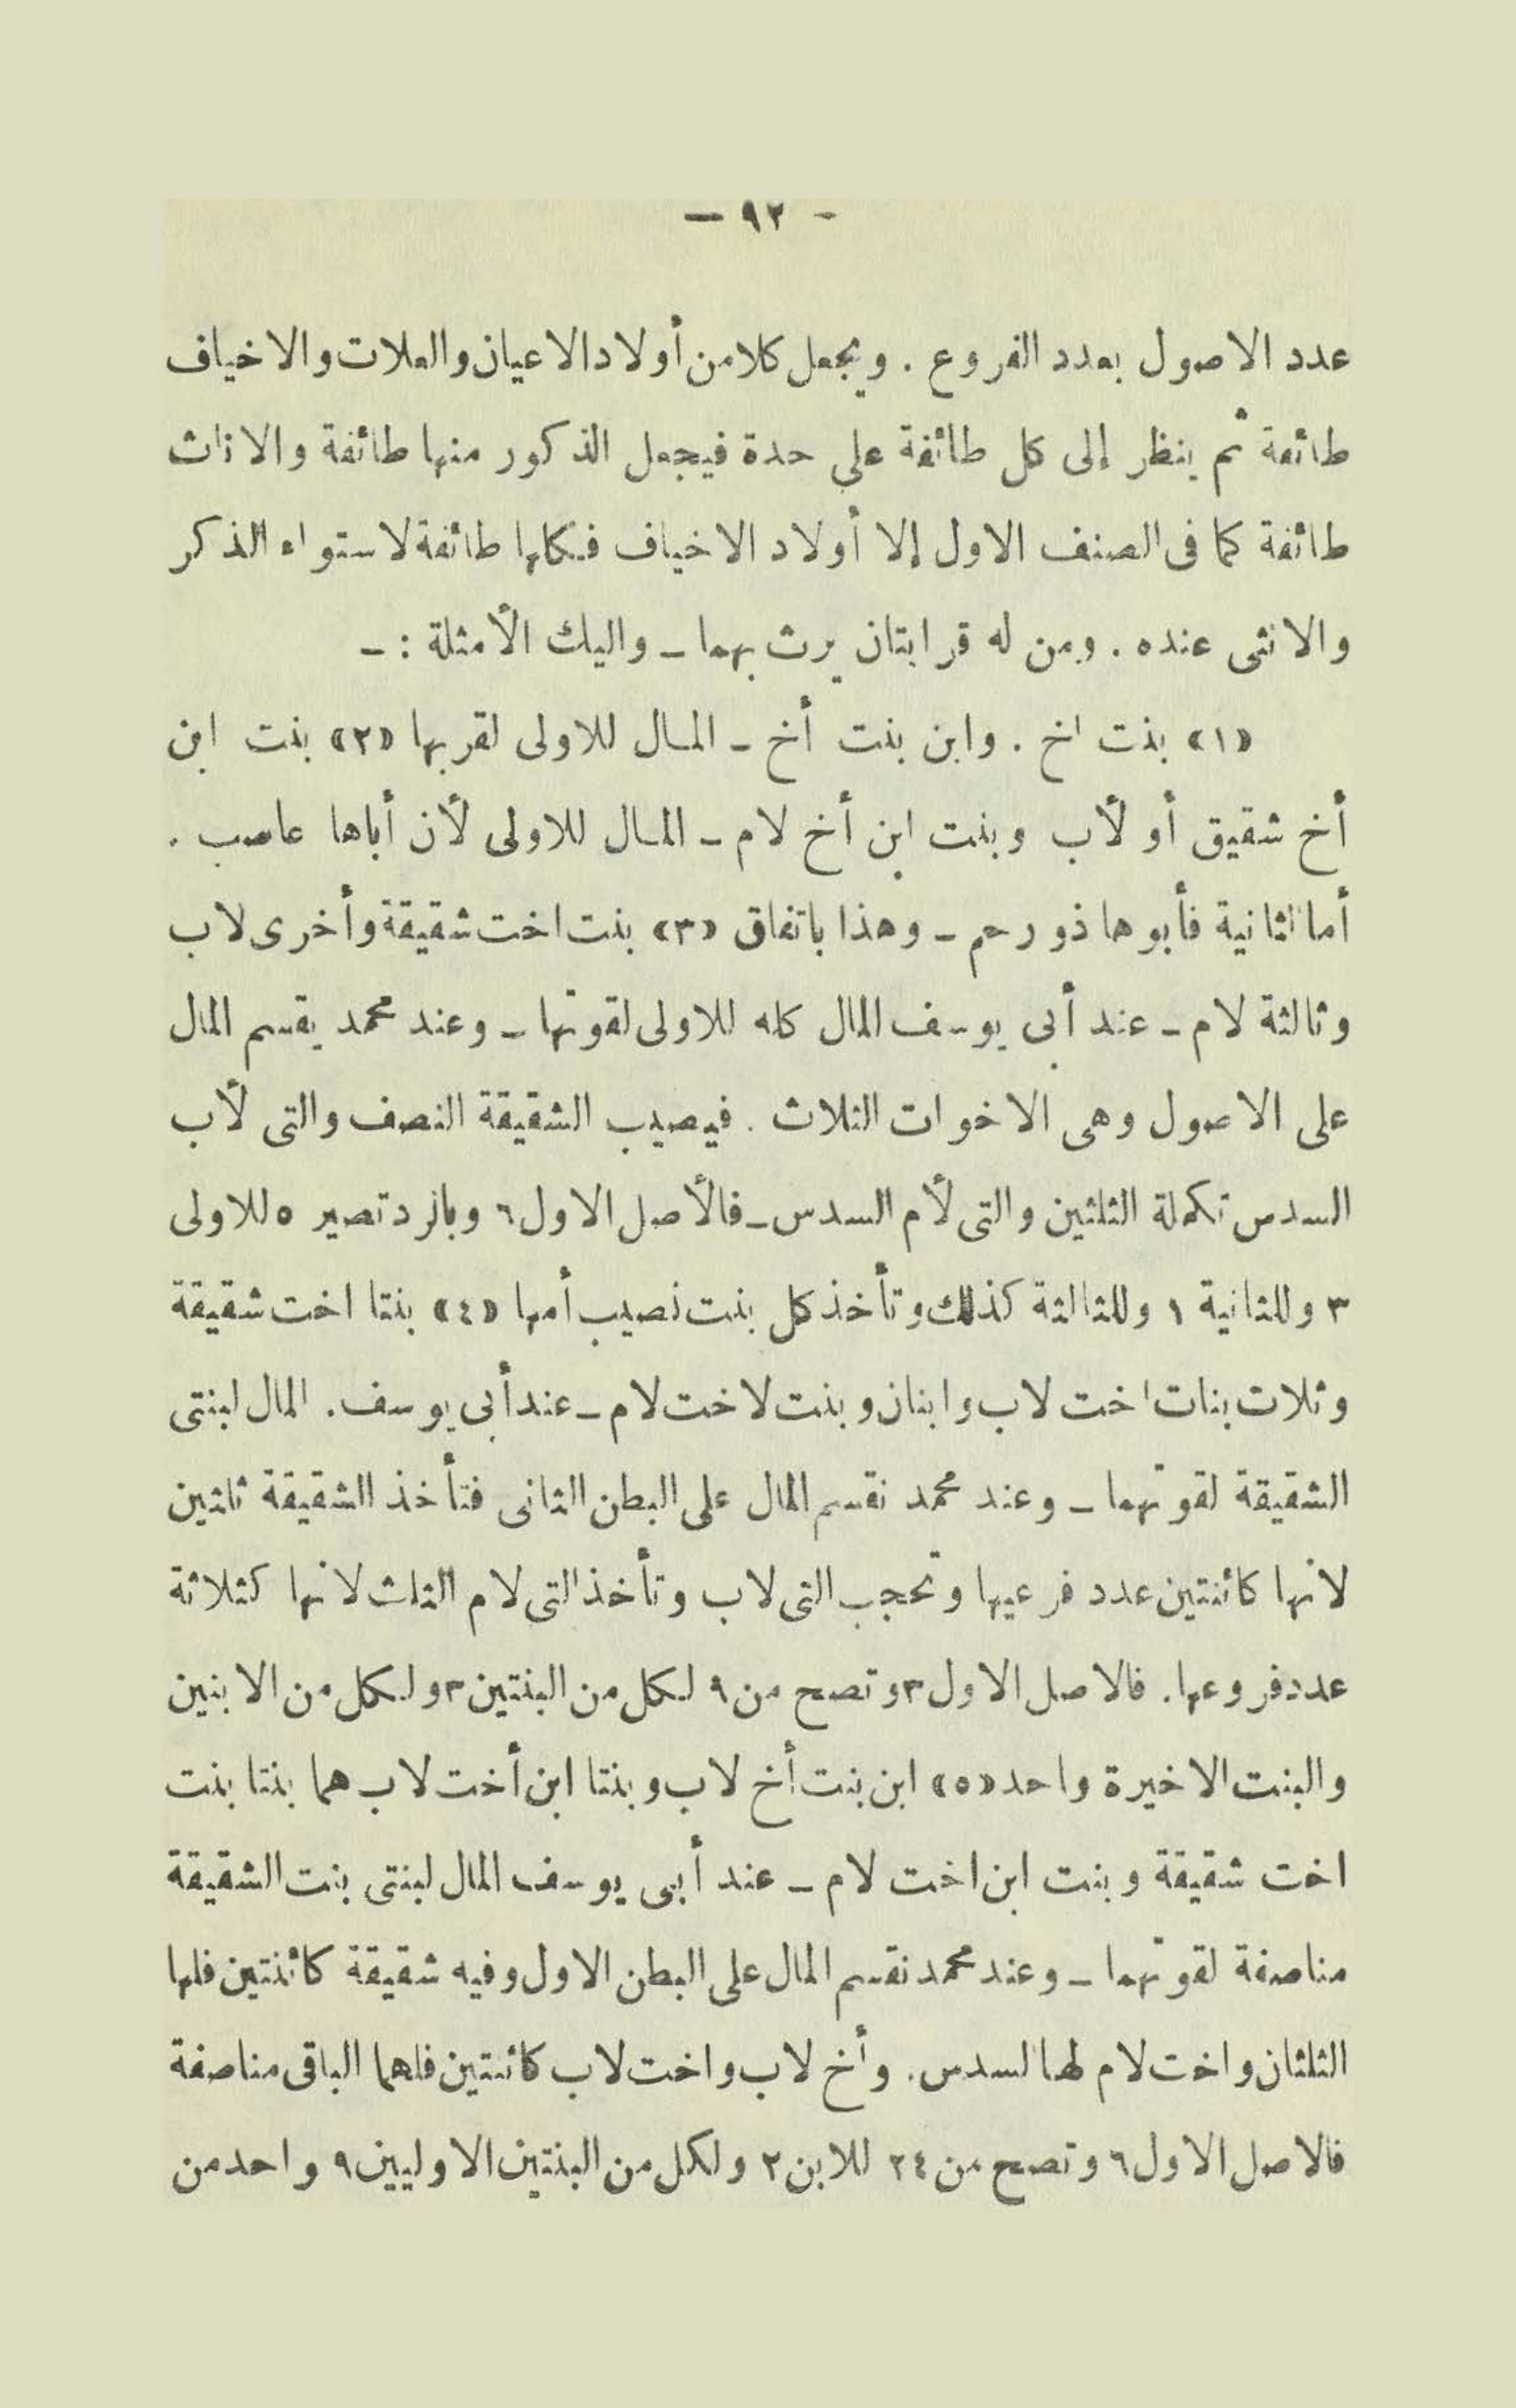 - ٩٢ -
عدد الاصول بعدد الفروع . ويجعل كلا من أولاد الاعيان والعلات والاخياف
طائفة ثم ينظر إلى كل طائفة على حدة فيجعل الذكور منها طائفة والاناث
طائفة كما فى الصنف الاول إلا أولاد الاخياف فكلها طائفة لاستواء الذكر
والانثى عنده . ومن له قرابتان يرث بهما ـ واليك الأمثلة : ـ
«١» بنت اخ . وابن بنت أخ ـ المال للاولى لقربها «٢» بنت ابن
أخ شقيق أو لأب وبنت ابن أخ لام ـ المال للاولى لأن أباها عاصب .
أما الثانية فأبوها ذو رحم ـ وهذا باتفاق «٣» بنت اخت شقيقة وأخرى لاب
وثالثة لام ـ عند أبى يوسف المال كله للاولى لقوتها ـ وعند محمد يقسم المال
على الاصول وهى الاخوات الثلاث . فيصيب الشقيقة النصف والتى لأب
السدس تكملة الثلثين والتى لأم السدس ـ فالأصل الاول ٦ وبالرد تصير ٥ للاولى
٣ وللثانية ١ وللثالثة كذلك وتأخذ كل بنت نصيب أمها «٤» بنتا اخت شقيقة
وثلاث بنات اخت لاب وابنان وبنت لاخت لام ـ عند أبى يوسف . المال لبنتى
الشقيقة لقوتهما ـ وعند محمد نقسم المال على البطن الثانى فتأخذ الشقيقة ثلثين
لانها كاثنتين عدد فرعيها وتحجب التى لاب وتأخذ التى لام الثلث لانها كثلاثة
عدد فروعها . فالاصل الاول ٣ وتصح من ٩ لكل من البنتين ٣ ولكل من الابنين
والبنت الاخيرة واحد «٥» ابن بنت أخ لاب وبنتا ابن أخت لاب هما بنتا بنت
اخت شقيقة وبنت ابن اخت لام ـ عند أبى يوسف المال لبنتى بنت الشقيقة
مناصفة لقوتهما ـ وعند محمد نقسم المال على البطن الاول وفيه شقيقة كاثنتين فلها
الثلثان واخت لام لها السدس . وأخ لاب واخت لاب كاثنتين فلهما الباقى مناصفة
فالاصل الاول ٦ وتصح من ٢٤ للابن ٢ ولكل من البنتين الاوليين ٩ واحد من